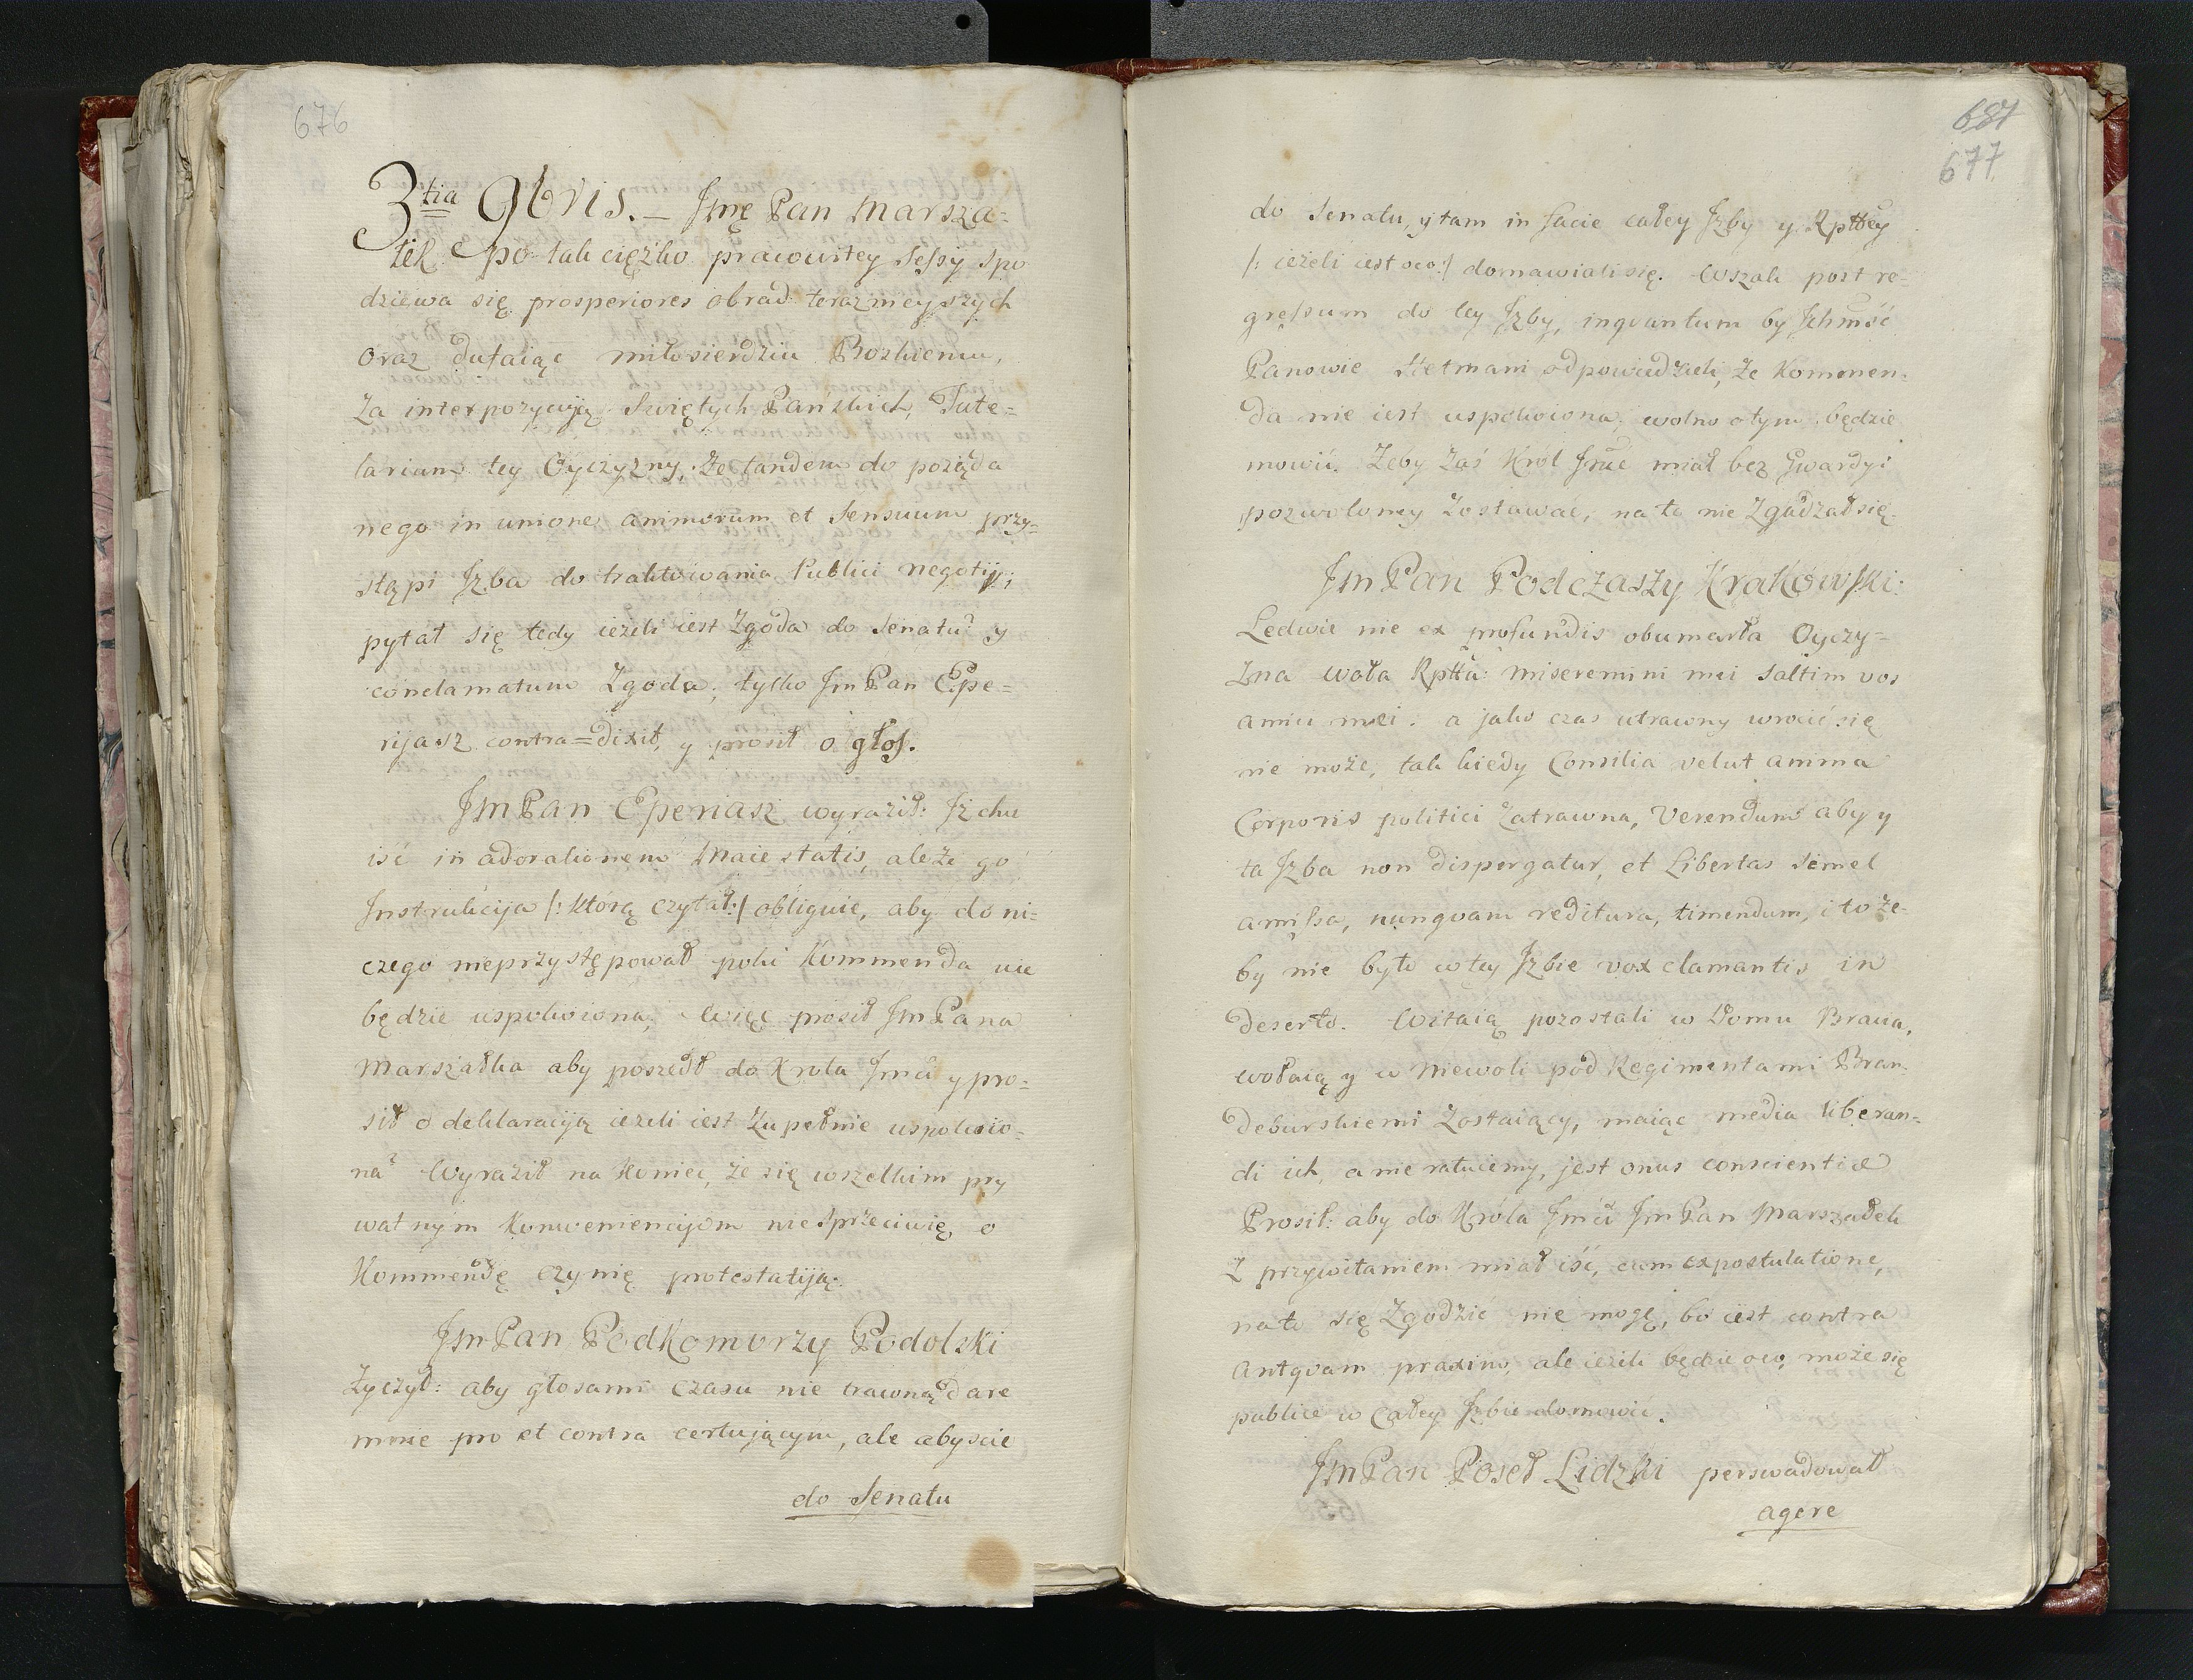 676
3tia 9bris. — Jmę Pan Marsza=
łek po tak ciężko pracowitey Sessyi spo
dziewa się prosperiores obrad teraznieyszych
oraz dufaiąc miłosierdziu Bozkiemu,
za interpozycyją Swiętych Pańskich, Tute=
larium tey Oyczyzny, że tandem do pożąda
nego in unione animorum et sensuum przy=
stąpi Jzba do traktowania Publici negotij;
pytał się tedy ieżeli iest Zgoda do Senatu? y
conclamatum Zgoda; tylko Jm Pan Epe=
rijasz contra=dixit, y prosił o głos.
Jm Pan Eperiasz wyraził: Jż chce
iść in adorationem Maiestatis, ale że go
Jnstrukcija /: którą czytał:/ obliguie, aby do ni=
czego nieprzystępował poki Kommenda nie
będzie uspokoiona; więc prosił Jm Pana
Marszałka aby poszedł do Krola Jmci y pro=
sił o deklaracyją ieżeli iest zupełnie uspokoio=
na? Wyraził na koniec, że się wszelkim pry
watnym konwenienciiom nie sprzeciwię, o
Kommendę czynię protestatiją.
Jm Pan Podkomorzy Podolski
Życzył: aby głosami czasu nie trawną dare
mnie pro et contra certującym, ale abyscie
do Senatu
687
677
do Senatu, y tam in facie całey Jzby y Rpttey
/: ieżeli iest oco:/ domawiali się. Wszak post re=
gressum do tey Jzby, inqvantum by Jchmść
Panowie Hetmani odpowiedzieli, że Kommen=
da nie iest uspokoiona, wolno o tym będzie
mowić. Żeby zaś Król Jmć miał bez Gwardyi
pozwoloney zostawać, na to nie Zgadzał się.
Jm Pan Podczaszy Krakówski:
Ledwie nie ex profundis obumarła Oyczy=
zna woła Rptta: miseremini mei saltim vos
amici mei: a jako czas utrawny wrocić się
nie może, tak kiedy Consilia velut anima
Corporis politici zatrawna, Verendum aby y
ta Jzba non dispergatur, et Libertas semel
amissa, nunqvam reditura, timendum, i to że=
by nie było w tey Jzbie vox clamantis in
deserto. Witaią pozostali w Domu Bracia,
wołaią y w Niewoli pod Regimentami Bran=
deburskiemi zostaiący, maiąc media liberan=
di ich, a nie ratuiemy, jest onus conscientiæ
Prosił: aby do Króla Jmći Jm Pan Marszałek
z przywitaniem miał iść, cum expostulatione,
na to się Zgodzić nie mogę, bo iest contra
antqvam praxim, ale ieżeli będzie oco, może się
publice w Całey Jzbie domowić.
Jm Pan Poseł Lidzki perswadował
agere